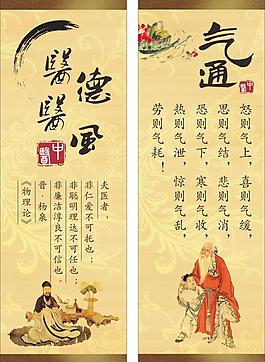 醫德醫風
中醫
夫医者，
非仁爱不可托也；
非聪明理达不可任也；
非廉洁淳良不可信也。
晋·杨泉
《物理论》
气通
中醫
怒则气上，喜则气缓，
思则气结，悲则气消，
恐则气下，寒则气收，
热则气泄，惊则气乱，
劳则气耗！